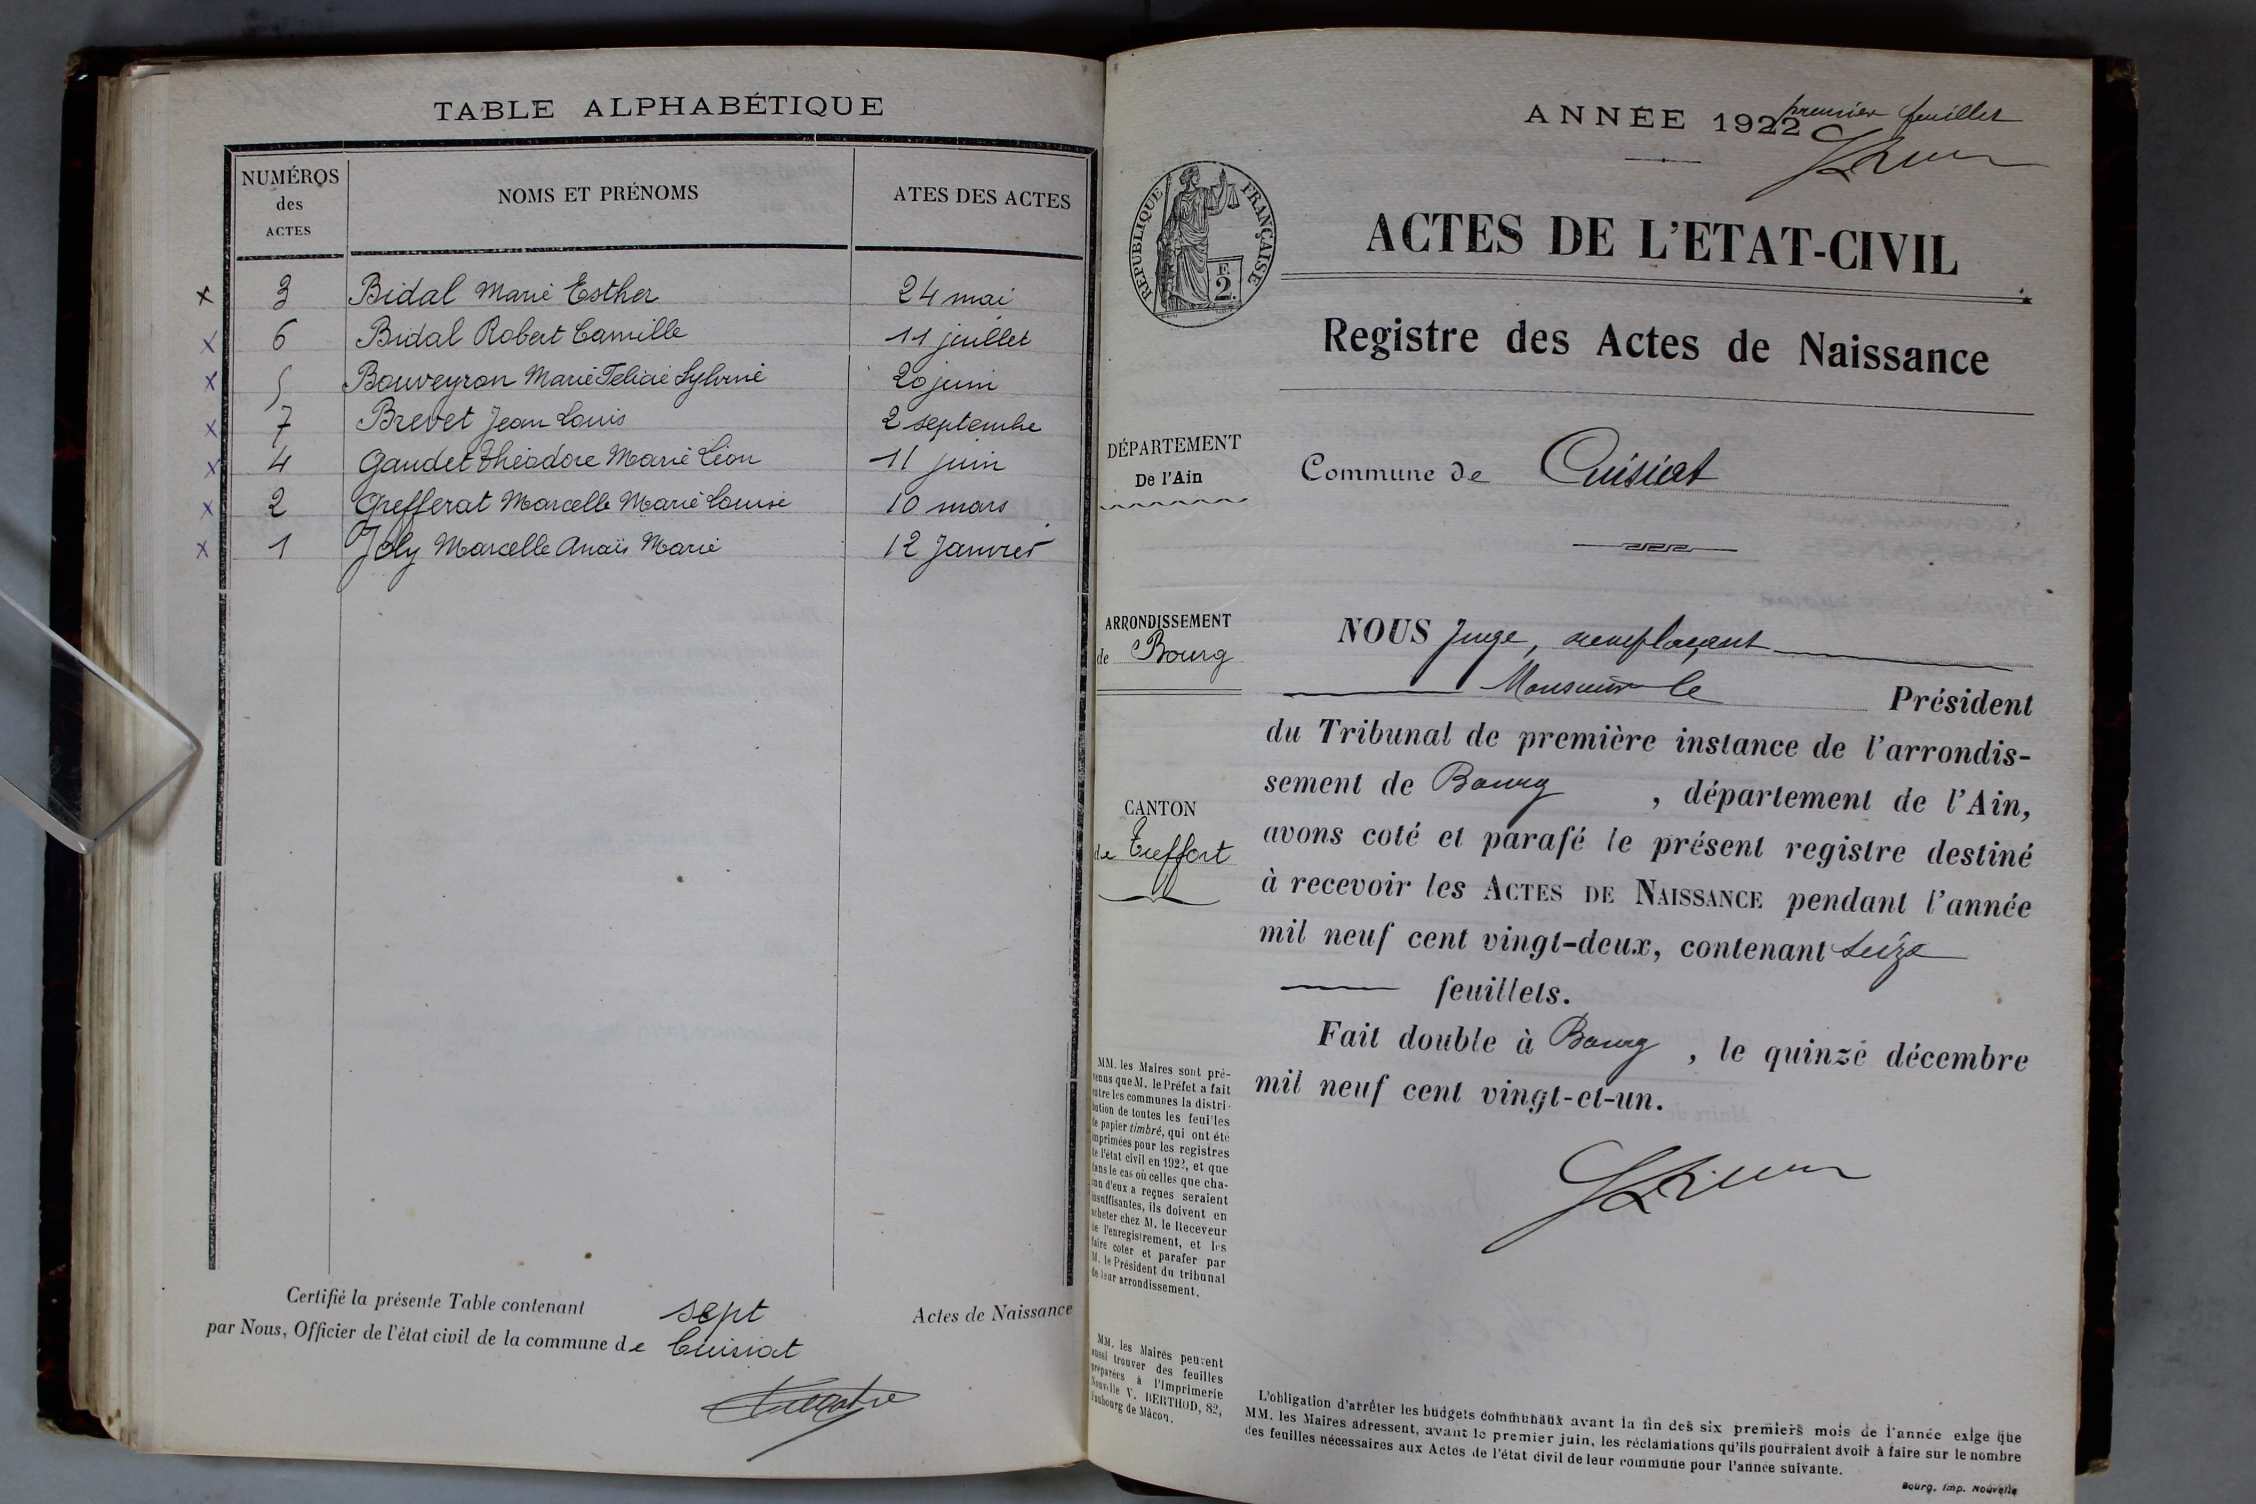 TABLE ALPHABÉTIQUE
NUMÉROS
des
ACTES
NOMS ET PRÉNOMS
ATES DES ACTES
3 Bidal Marie Esther 24 mai
6 Bidal Robert Camille 11 juillet
5 Bouveyron Marie Felicie Sylvine 20 juin
7 Brevet Jean Louis 2 septembre
4 Gaudet Théodore Marie Léon 11 juin
2 Grefferat Marcelle Marie Louise 10 mars
1 Joly Marcelle Anaïs Marie 12 Janvier
Certifié la présente Table contenant sept Actes de Naissance
par Nous, Officier de l'état civil de la commune de Cuisiat
ANNÉE 1922
premier feuillet
RÉPUBLIQUE FRANÇAISE
F.
2.
ACTES DE L'ETAT-CIVIL
Registre des Actes de Naissance
DÉPARTEMENT
De l'Ain
Commune de Cuisiat
ARRONDISSEMENT
de Bourg
CANTON
de Treffort
NOUS Juge, remplaçant
Monsieur le Président
du Tribunal de première instance de l'arrondis-
sement de Bourg, département de l'Ain,
avons coté et parafé le présent registre destiné
à recevoir les ACTES DE NAISSANCE pendant l'année
mil neuf cent vingt-deux, contenant seize
feuillets.
Fait double à Bourg, le quinze décembre
mil neuf cent vingt-et-un.
MM. les Maires sont pré-
venus que M. le Préfet a fait
entre les communes la distri-
bution de toutes les feuilles
de papier timbré, qui ont été
imprimées pour les registres
de l'état civil en 1922, et que
dans le cas où celles que cha-
cun d'eux a reçues seraient
insuffisantes, ils doivent en
acheter chez M. le Receveur
de l'enregistrement, et les
faire coter et parafer par
M. le Président du tribunal
de leur arrondissement.
MM. les Maires peuvent
aussi trouver des feuilles
préparées à l'Imprimerie
Nouvelle V. BERTHOD, 82,
faubourg de Mâcon.
L'obligation d'arrêter les budgets communaux avant la fin des six premiers mois de l'année exige que
MM. les Maires adressent, avant le premier juin, les réclamations qu'ils pourraient avoir à faire sur le nombre
des feuilles nécessaires aux Actes de l'état civil de leur commune pour l'année suivante.
Bourg, Imp. Nouvelle